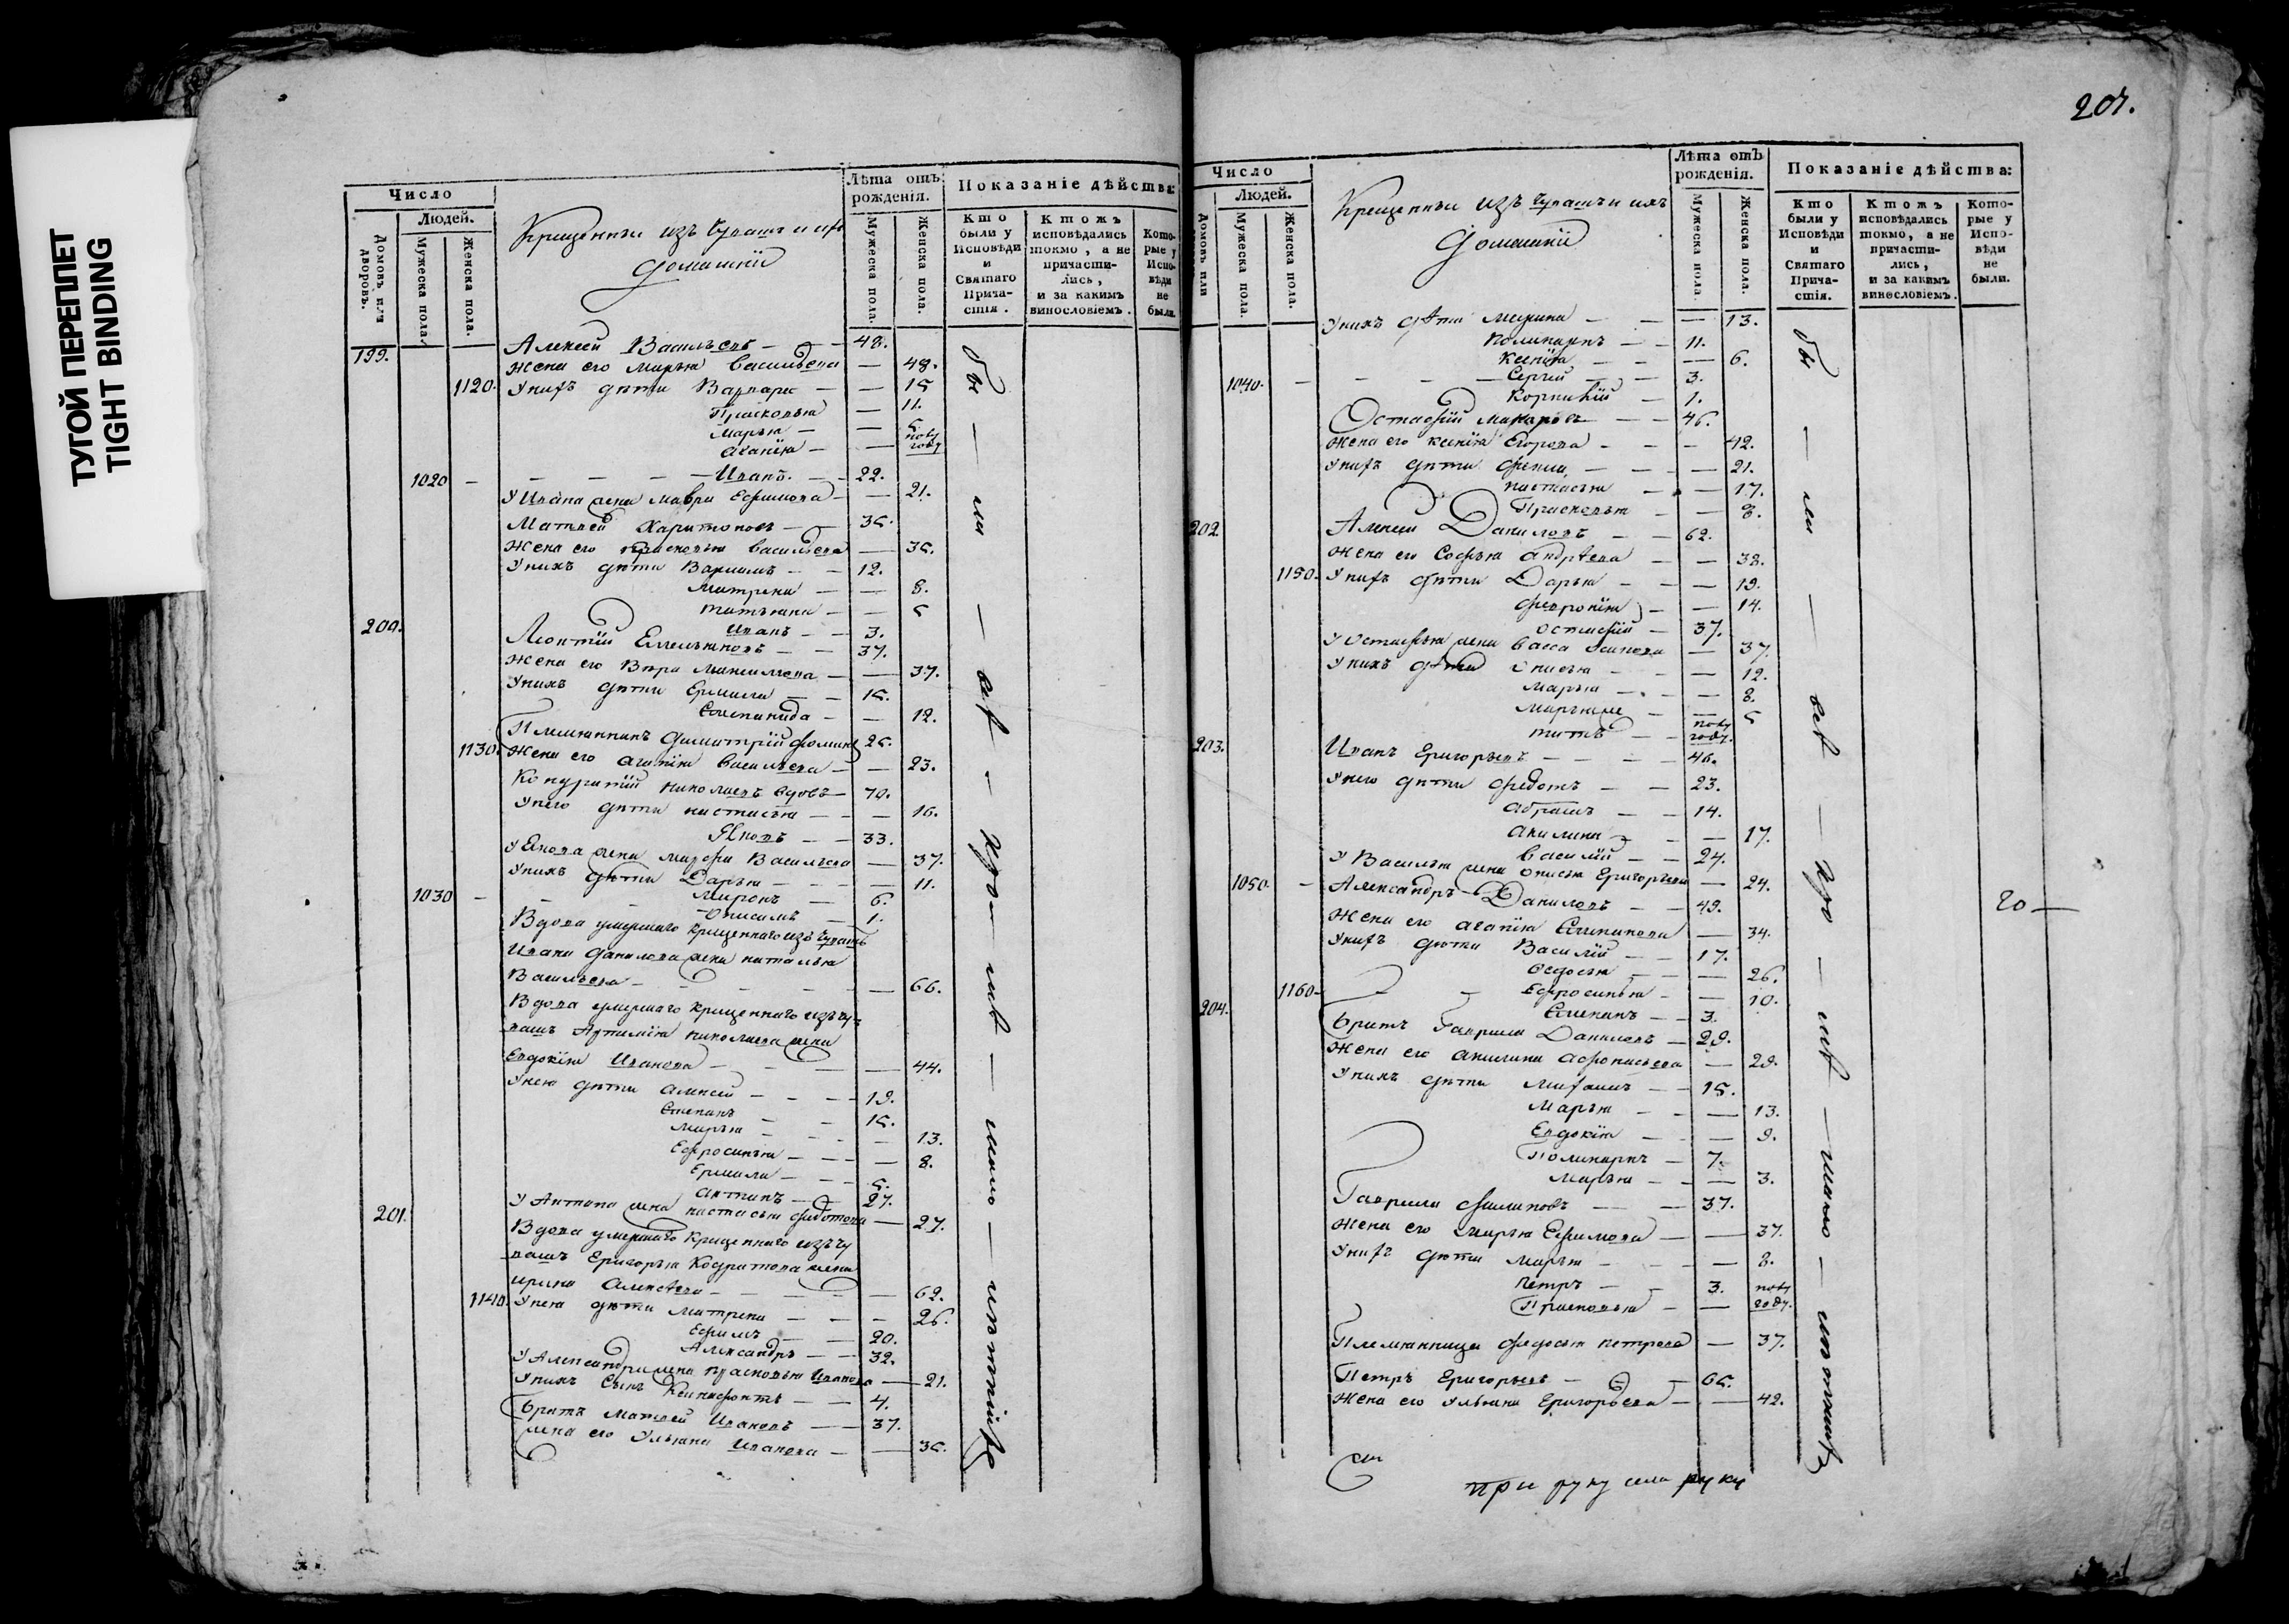 ТУГОЙ ПЕРЕПЛЕТ
TIGHT BINDING
Число
Людей.
Домовъ или дворовъ.
Мужеска пола.
Женска пола.
Крещенныи изъ Чувашъ и ихъ
домашнiи
Лѣта отъ рожденiя.
Мужеска пола.
Женска пола.
Показанiе дѣйства:
Кто были у Исповѣди и Святаго Прича-стiя.
Ктожъ исповѣдались токмо, а не причасти-лись, и за какимъ винословiемъ.
Кото-рые у Испо-вѣди не были.
199. Алексей Васильевъ 48.
жена его Марья Васильева 48.
1120. У нихъ дѣти Варвара 15
Прасковья 11.
Марья 5
Агапiя полу году
1020 Иванъ 22.
У Ивана жена Мавра Ефимова 21.
Матвей Харитоновъ 35.
жена его Прасковья Васильева 35.
У нихъ дѣти Варламъ 12.
Матрена 8.
Татьяна 5
Иванъ 3.
200. Леонтiй Емельяновъ 37.
жена его Вѣра Максимова 37.
У нихъ дѣти Ермила 15.
Степанида 12.
Племянникъ Димитрiй Фоминъ 25.
1130. жена его Агапiя Васильева 23.
Кондратiй Николаевъ вдовъ 70.
У него дѣти Настасья 16.
Яковъ 33.
У Якова жена Марфа Васильева 37.
У нихъ дѣти Дарья 11.
1030 Миронъ 6.
Онисимъ 1.
Вдова умершаго крещеннаго изъ Чувашъ
Ивана Данилова жена Наталья
Васильева 66.
Вдова умершаго крещеннаго изъ Чу-
вашъ Артемiя Николаева жена
Евдокiя Иванова 44.
У нею дѣти Алексей 19.
Степанъ 15.
Марья 13.
Ефросинья 8.
Ермила 5.
Антипъ 27.
201. У Антипа жена Настасья Федотова 27.
Вдова умершаго крещеннаго изъ Чу
вашъ Григорья Кодратова жена
Ирина Алексѣева 62.
1140. У нею дѣти Матрена 26.
Ефимъ 20.
Александръ 32.
У Александра жена Прасковья Иванова 21.
У нихъ сынъ Ксенофонтъ 4.
Братъ Матвей Ивановъ 37.
жена его Ульяна Иванова 35.
бы — ли — всѣ — кро — мѣ — токмо
207.
Число
Людей.
Домовъ или
Мужеска пола.
Женска пола.
Крещенныи изъ Чувашъ и ихъ
домашнiи
Лѣта отъ рожденiя.
Мужеска пола.
Женска пола.
Показанiе дѣйства:
Кто были у Исповѣди и Святаго Прича-стiя.
Ктожъ исповѣдались токмо, а не причасти-лись, и за какимъ винословiемъ.
Кото-рые у Испо-вѣди не были.
У нихъ дѣти 13.
Поликарпъ 11.
Ксенiя 6.
1040. Сергiй 3.
Корнилiй 1.
Остафiй Макаровъ 46.
жена его Ксенiя Егорова 42.
У нихъ дѣти 21.
Настасья 17.
Прасковья 8.
202. Алексей Даниловъ 62.
жена его Софья Андрѣева 38.
1150. У нихъ дѣти Дарья 19.
Феврониiя 14.
Остафiй 37.
У Остафья жена Васса Осипова 37.
У нихъ дѣти Анисья 12.
Марья 8.
5
Титъ полу году.
203. Иванъ Григорьевъ 46.
У него дѣти Федотъ 23.
Абрамъ 14.
Акилина 17.
Василiй 24.
1050. У Василья жена Анисья Григорьева 24.
Александръ Даниловъ 49.
жена его Агапiя Степанова 34.
У нихъ дѣти Василiй 17.
Федосья 26.
1160 Ефросинья 10.
Степанъ 3.
204. Братъ Гаврила Даниловъ 29.
жена его Акилина Афонасьева 29.
У нихъ дѣти 15.
Марья 13.
Евдокiя 9.
Поликарпъ 7.
Марья 3.
Гаврила Филиповъ 37.
жена его Марья Ефимова 37.
У нихъ дѣти Марья 8.
Петръ 3.
Прасковья полу году.
Племянница Федосья Петрова 37.
Петръ Григорьевъ 65.
жена его Ульяна Григорьева 42.
бы — ли — всѣ — кро — мѣ — токмо
20 —
руку